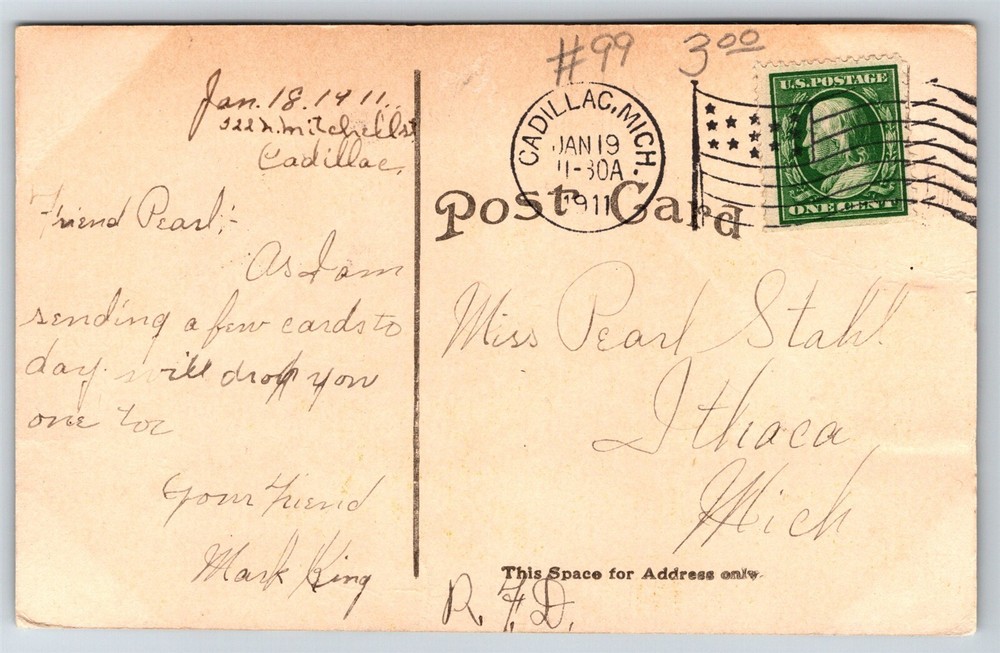 Jan. 18. 1911.
322 N. Mitchell st
Cadillac,
Friend Pearl;-
As I am
sending a few cards to
day. will drop you
one too
Your Friend
Mark King
#99 3.00
CADILLAC, MICH.
JAN 19
11-30A
1911
U.S. POSTAGE
ONE CENT
Post Card
Miss Pearl Stahl
Ithaca
Mich
This Space for Address only.
R.F.D.